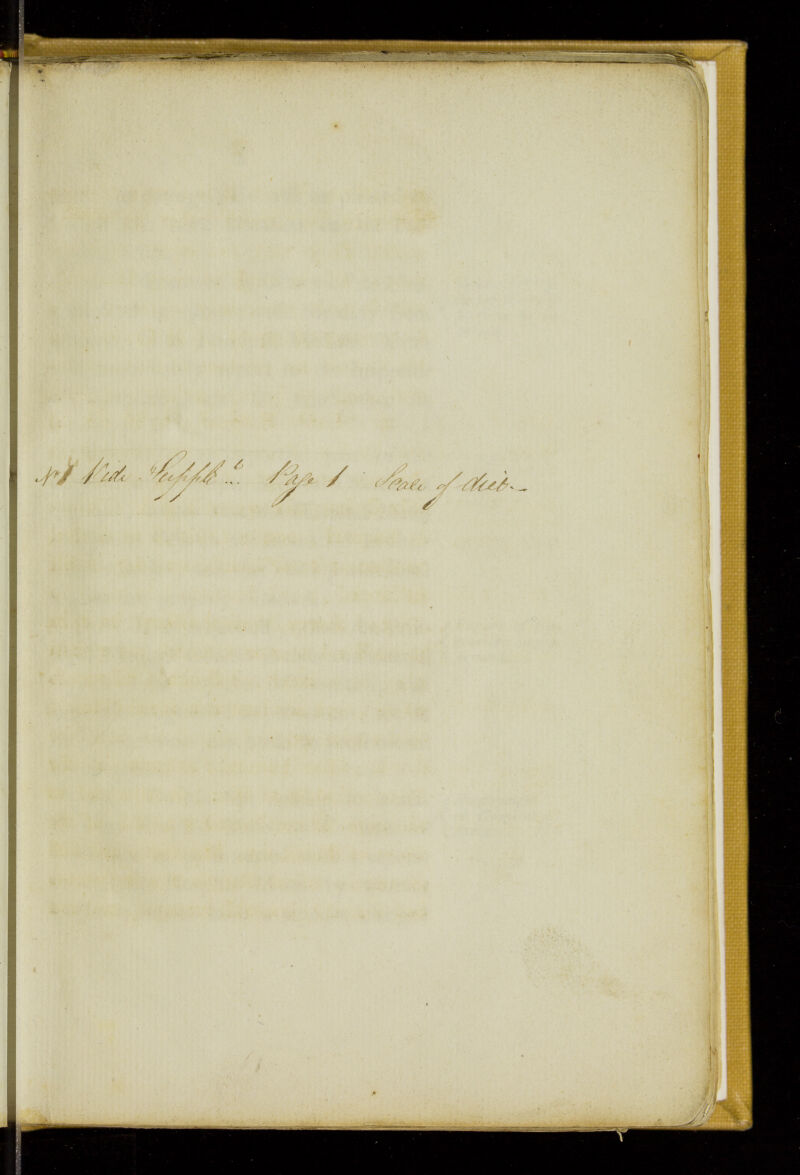 No 1 Vide "Supplt." Page 1 Scale of diet.—